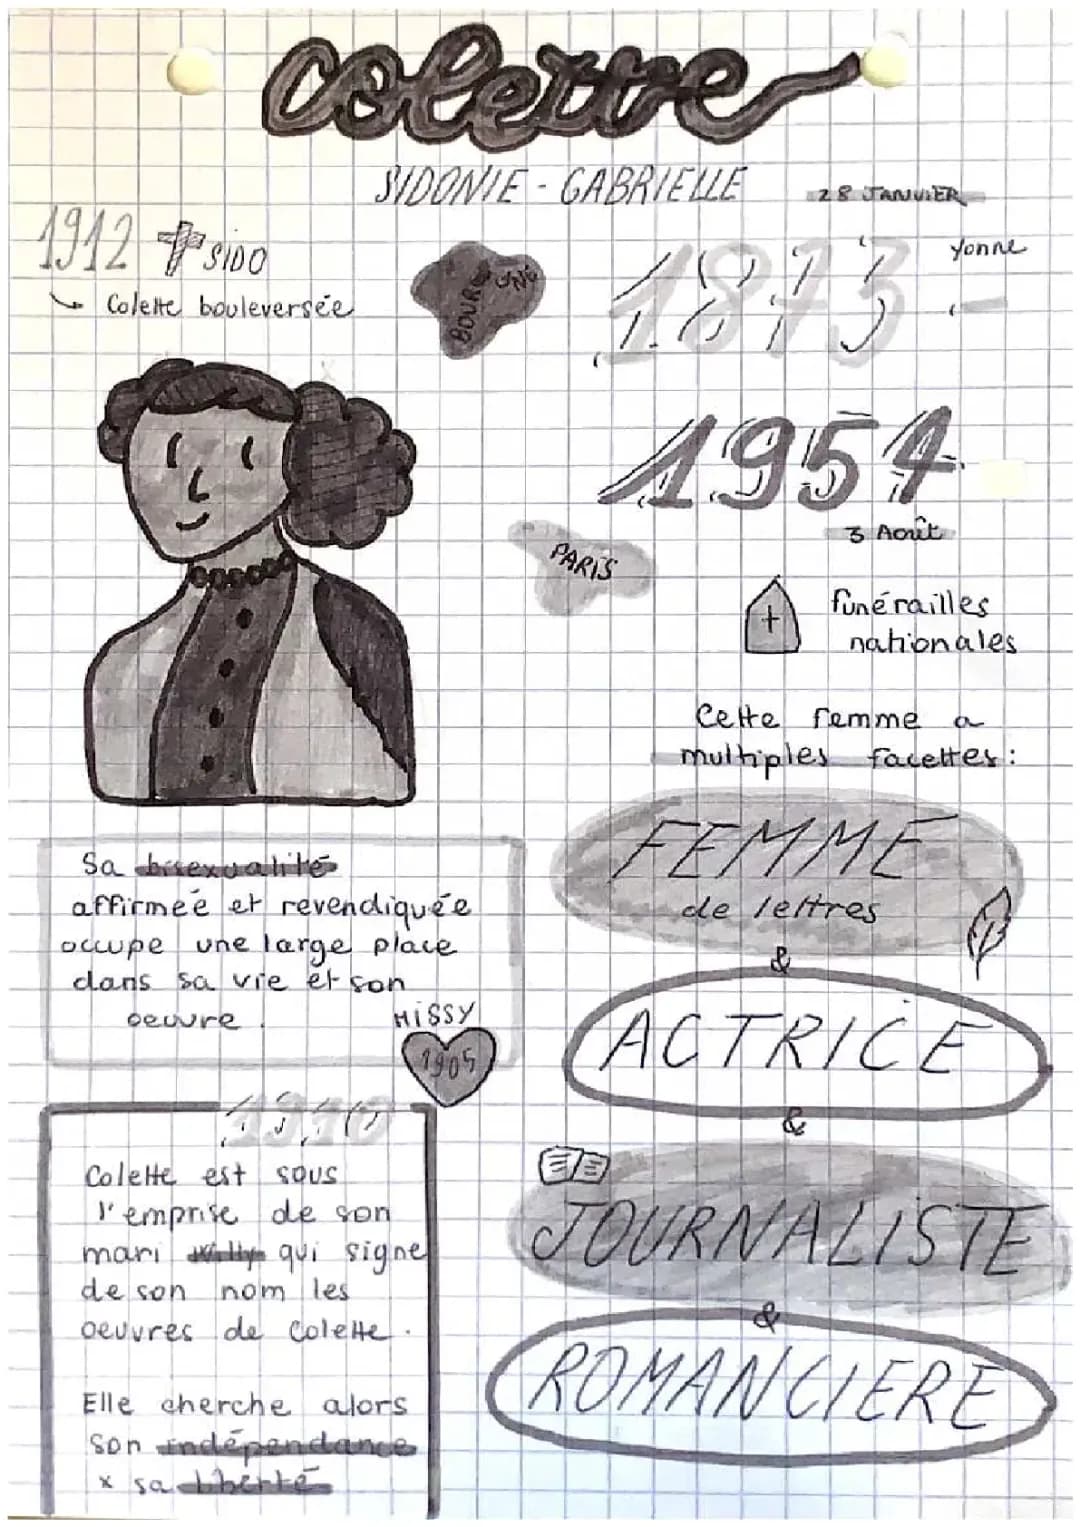 Colette
SIDONIE - GABRIELLE
28 JANVIER
1912 SIDO
Colette bouleversée
BOURGOGNE
1873
Yonne
1954
3 Août
PARIS
+
funérailles
nationales
Cette femme a
multiples facettes :
FEMME
de lettres
&
ACTRICE
&
JOURNALISTE
&
ROMANCIERE
Sa bisexualité
affirmée et revendiquée
occupe une large place
dans sa vie et son
oeuvre.
MISSY
1905
1910
Colette est sous
l'emprise de son
mari Willy qui signe
de son nom les
oeuvres de Colette.
Elle cherche alors
son indépendance
x sa liberté